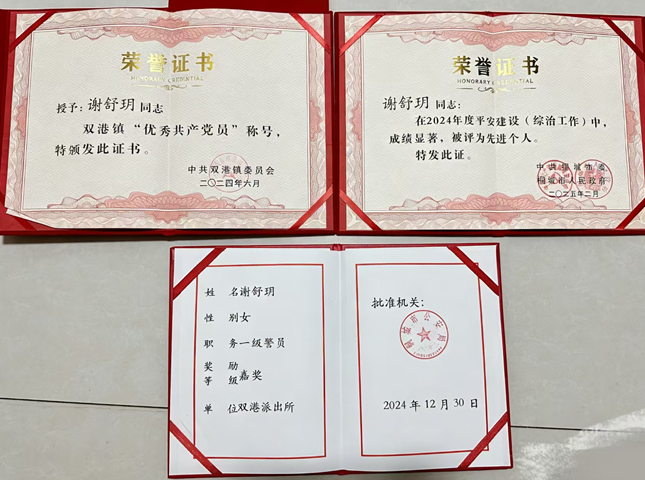 荣誉证书
HONORARY CREDENTIAL
授予:谢舒玥同志
双港镇“优秀共产党员”称号,
特颁发此证书。
中共双港镇委员会
二〇二四年六月
荣誉证书
HONORARY CREDENTIAL
谢舒玥同志:
在2024年度平安建设(综治工作)中,
成绩显著,被评为先进个人。
特发此证。
中共桐城市委
桐城市人民政府
二〇二五年二月
姓 名谢舒玥
性 别女
职 务一级警员
奖 励
等 级嘉奖
单 位双港派出所
批准机关:
桐城市公安局
2024年12月30日